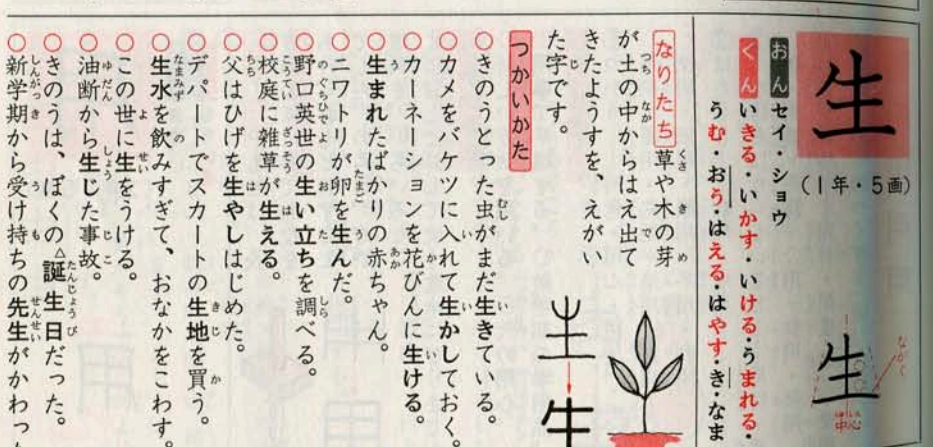 生
（1年・5画）
おん セイ・ショウ
くん いきる・いかす・いける・うまれる・
うむ・おう・はえる・はやす・き・なま
生
ながく
中心
なりたち 草や木の芽
が土の中からはえ出て
きたようすを、えがい
た字です。
つかいかた
○きのうとった虫がまだ生きている。
○カメをバケツに入れて生かしておく。
○カーネーションを花びんに生ける。
○生まれたばかりの赤ちゃん。
○ニワトリが卵を生んだ。
○野口英世の生い立ちを調べる。
○校庭に雑草が生える。
○父はひげを生やしはじめた。
○デパートでスカートの生地を買う。
○生水を飲みすぎて、おなかをこわす。
○この世に生をうける。
○油断から生じた事故。
○きのうは、ぼくの△誕生日だった。
○新学期から受け持ちの先生がかわっ